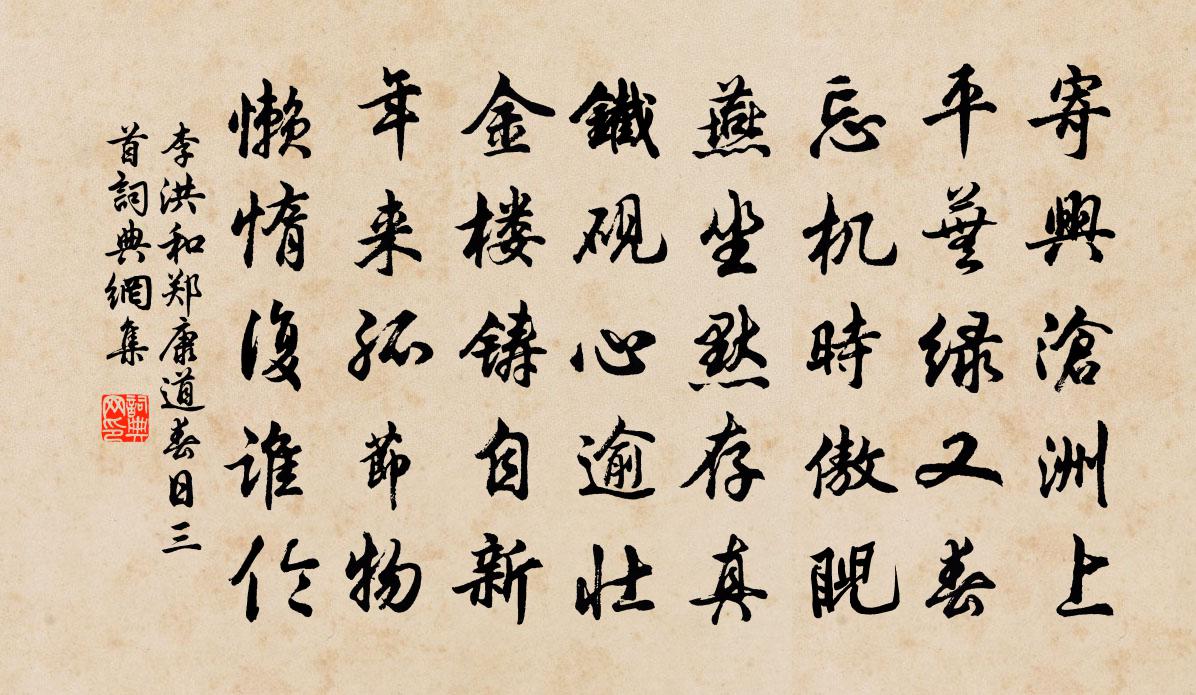 寄興滄洲上
平蕪绿又春
忘机時傲睨
燕坐默存真
鐵硯心逾壮
金楼铸自新
年来孤節物
懒惰復谁伶
李洪和郑康道春日三
首詞典網集
詞典网印